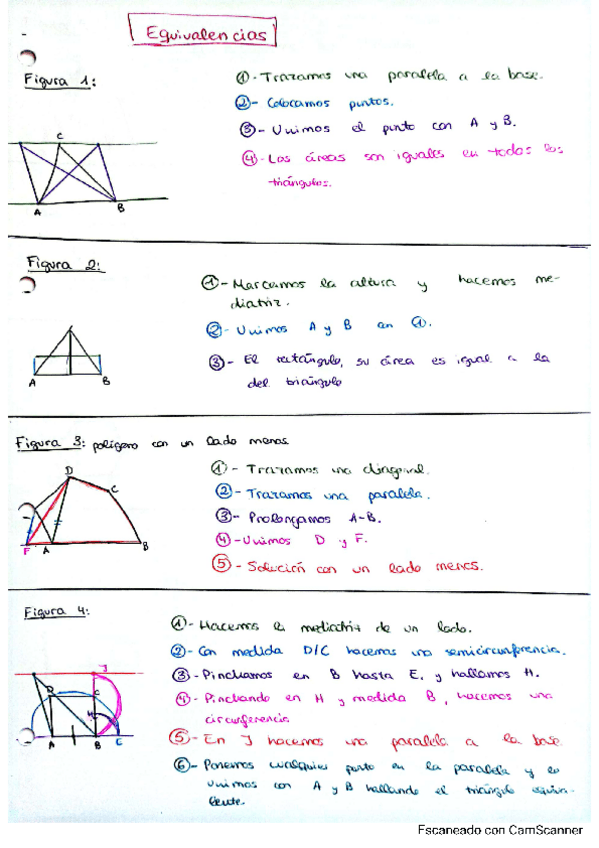 Equivalencias
Figura 1:
①- Trazamos una paralela a la base.
②- Colocamos puntos.
③- Unimos el punto con A y B.
④- Las áreas son iguales en todos los
triángulos.
C
A
B
Figura 2:
①- Marcamos la altura y hacemos me-
diatriz.
②- Unimos A y B en ①.
③- El rectángulo, su área es igual a la
del triángulo
A
B
Figura 3: polígono con un lado menos
①- Trazamos una diagonal.
②- Trazamos una paralela.
③- Prolongamos A-B.
④- Unimos D y F.
⑤- Solución con un lado menos.
D
C
F
A
B
Figura 4:
①- Hacemos la mediatriz de un lado.
②- Con medida D/C hacemos una semicircunferencia.
③- Pinchamos en B hasta E, y hallamos H.
④- Pinchando en H y medida B, hacemos una
circunferencia
⑤- En J hacemos una paralela a la base
⑥- Ponemos cualquier punto en la paralela y lo
unimos con A y B hallando el triángulo equiva-
lente.
J
D
C
H
A
B
E
Escaneado con CamScanner